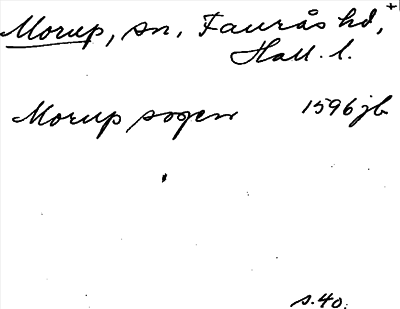 Morup, sn, Faurås hd, +
Hall. l.
Morup sogen 1596 jb
s. 40.